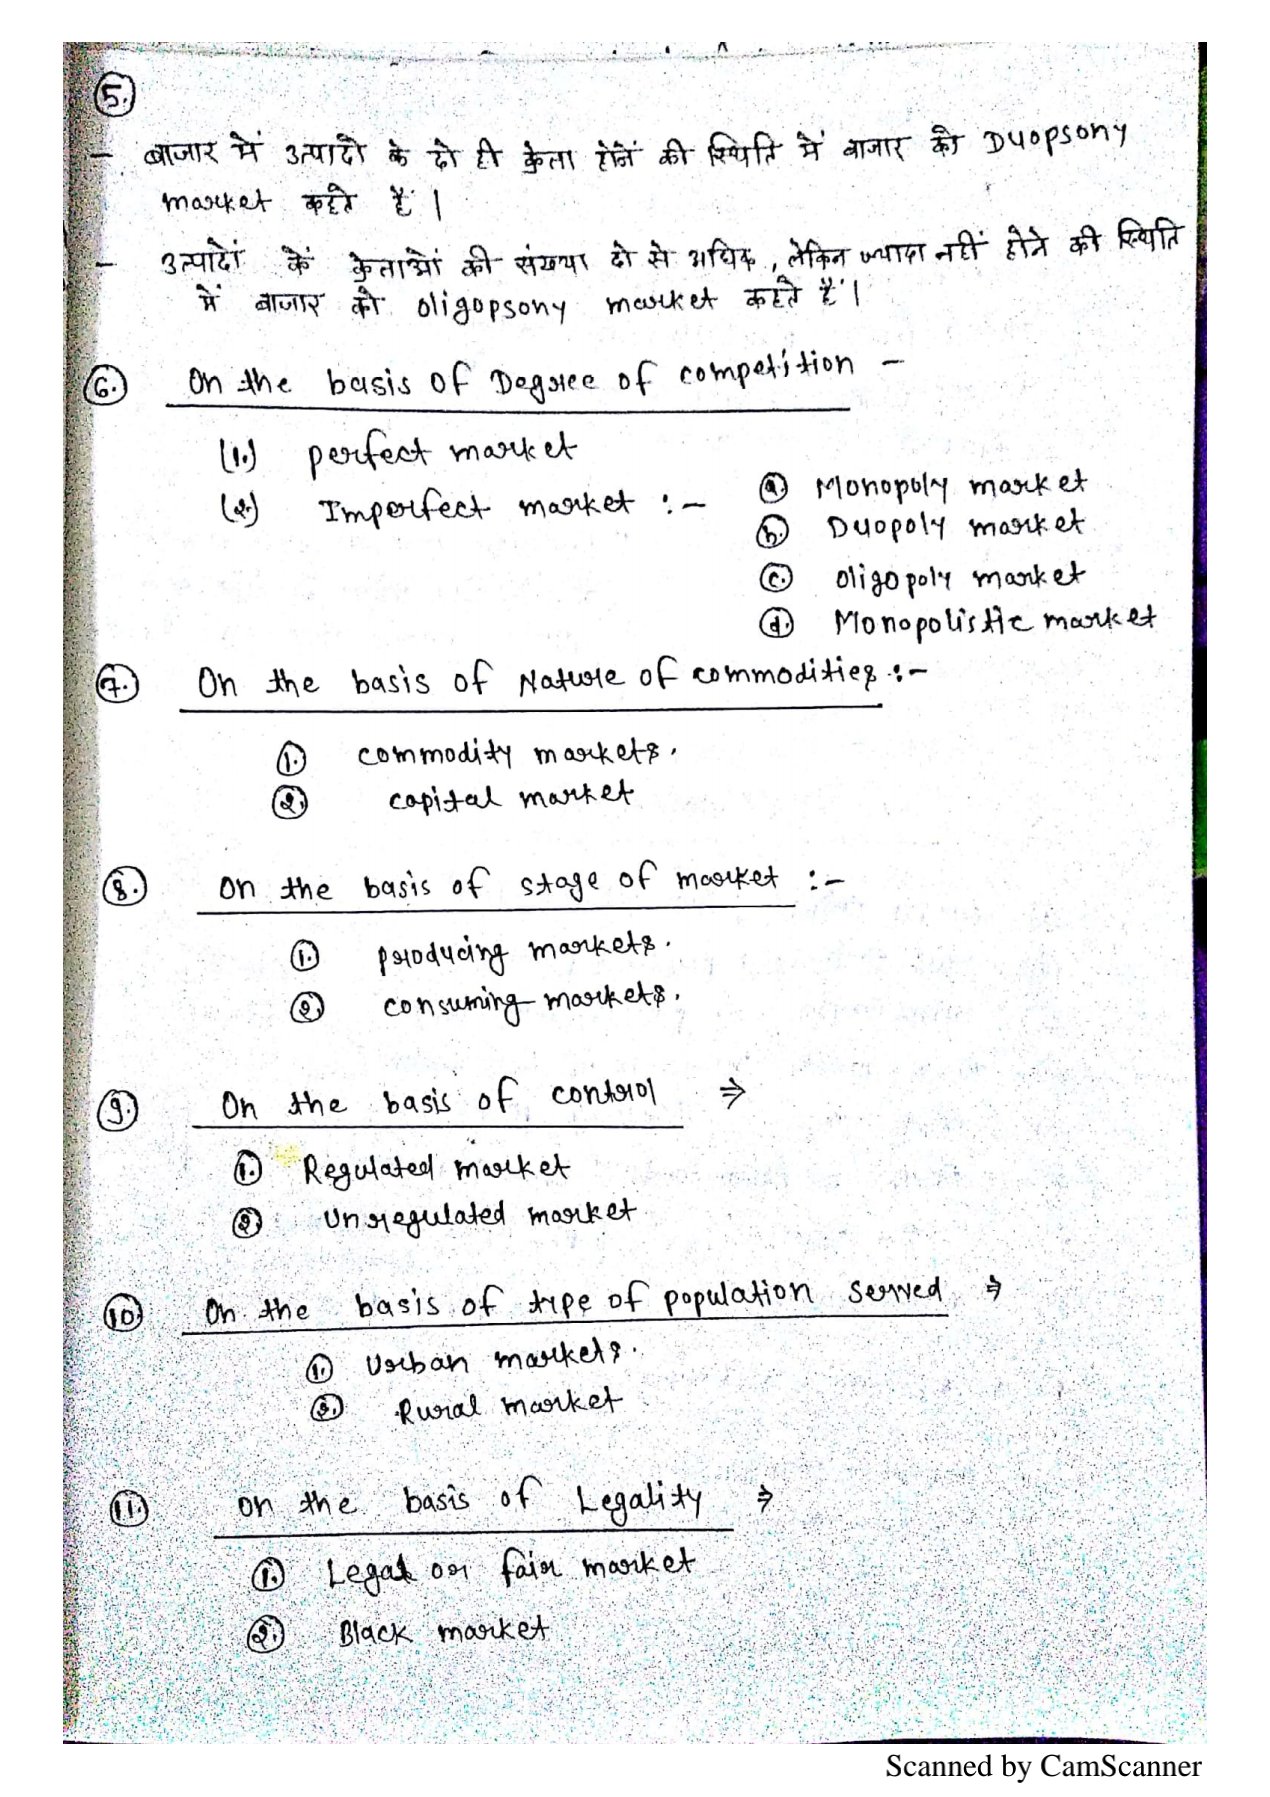 5.
- बाजार में उत्पादो के दो ही क्रेता होनें की स्थिति में बाजार को Duopsony
market कहते हैं।
- उत्पादों कें क्रेताओं की संख्या दो से अधिक, लेकिन ज्यादा नहीं होने की स्थिति
में बाजार को oligopsony market कहते हैं।
6. On the basis of Degree of competition -
(1.) perfect market
(2.) Imperfect market :- a. Monopoly market
b. Duopoly market
c. oligopoly market
d. Monopolistic market
7. On the basis of Nature of commodities :-
1. commodity markets.
2. capital market
8. On the basis of stage of market :-
1. producing markets.
2. consuming markets.
9. On the basis of control ⇒
1. Regulated market
2. Unregulated market
10. On the basis of type of population served ⇒
1. Urban markets.
2. Rural market
11. on the basis of Legality ⇒
1. Legal or fair market
2. Black market
Scanned by CamScanner